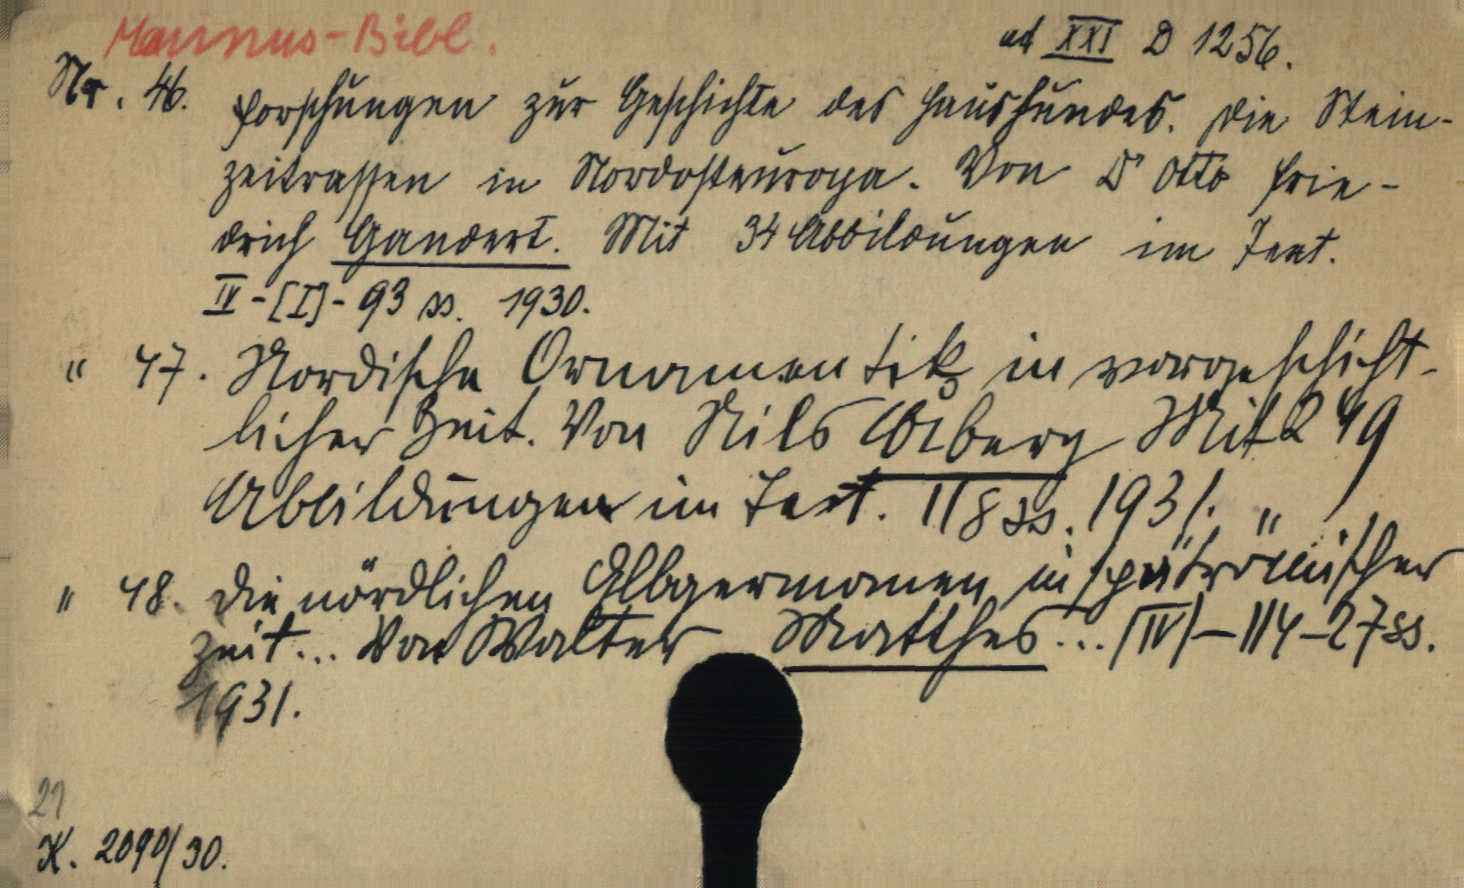 Mannus-Bibl.
ad XXI D 1256.
Nr. 46. Forschungen zur Geschichte des Haushundes. Die Stein-
zeitrassen in Nordosteuropa. Von Dr Otto Frie-
drich Gandert. Mit 34 Abbildungen im Text.
IV-[I]-93 ss. 1930.
" 47. Nordische Ornamentik in vorgeschicht-
licher Zeit. Von Nils Åberg Mit 249
Abbildungen im Text. 118 ss. 1931.
" 48. Die nördlichen Elbgermanen in spätrömischer
Zeit... Von Walter Matthes... [IV]-114-27 ss.
1931.
21
K. 2090/30.